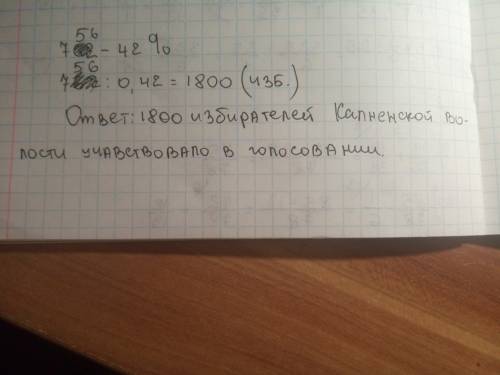 756 - 42%
756 : 0,42 = 1800 (изб.)
Ответ: 1800 избирателей Калненской во-
лости учавствовало в голосовании.